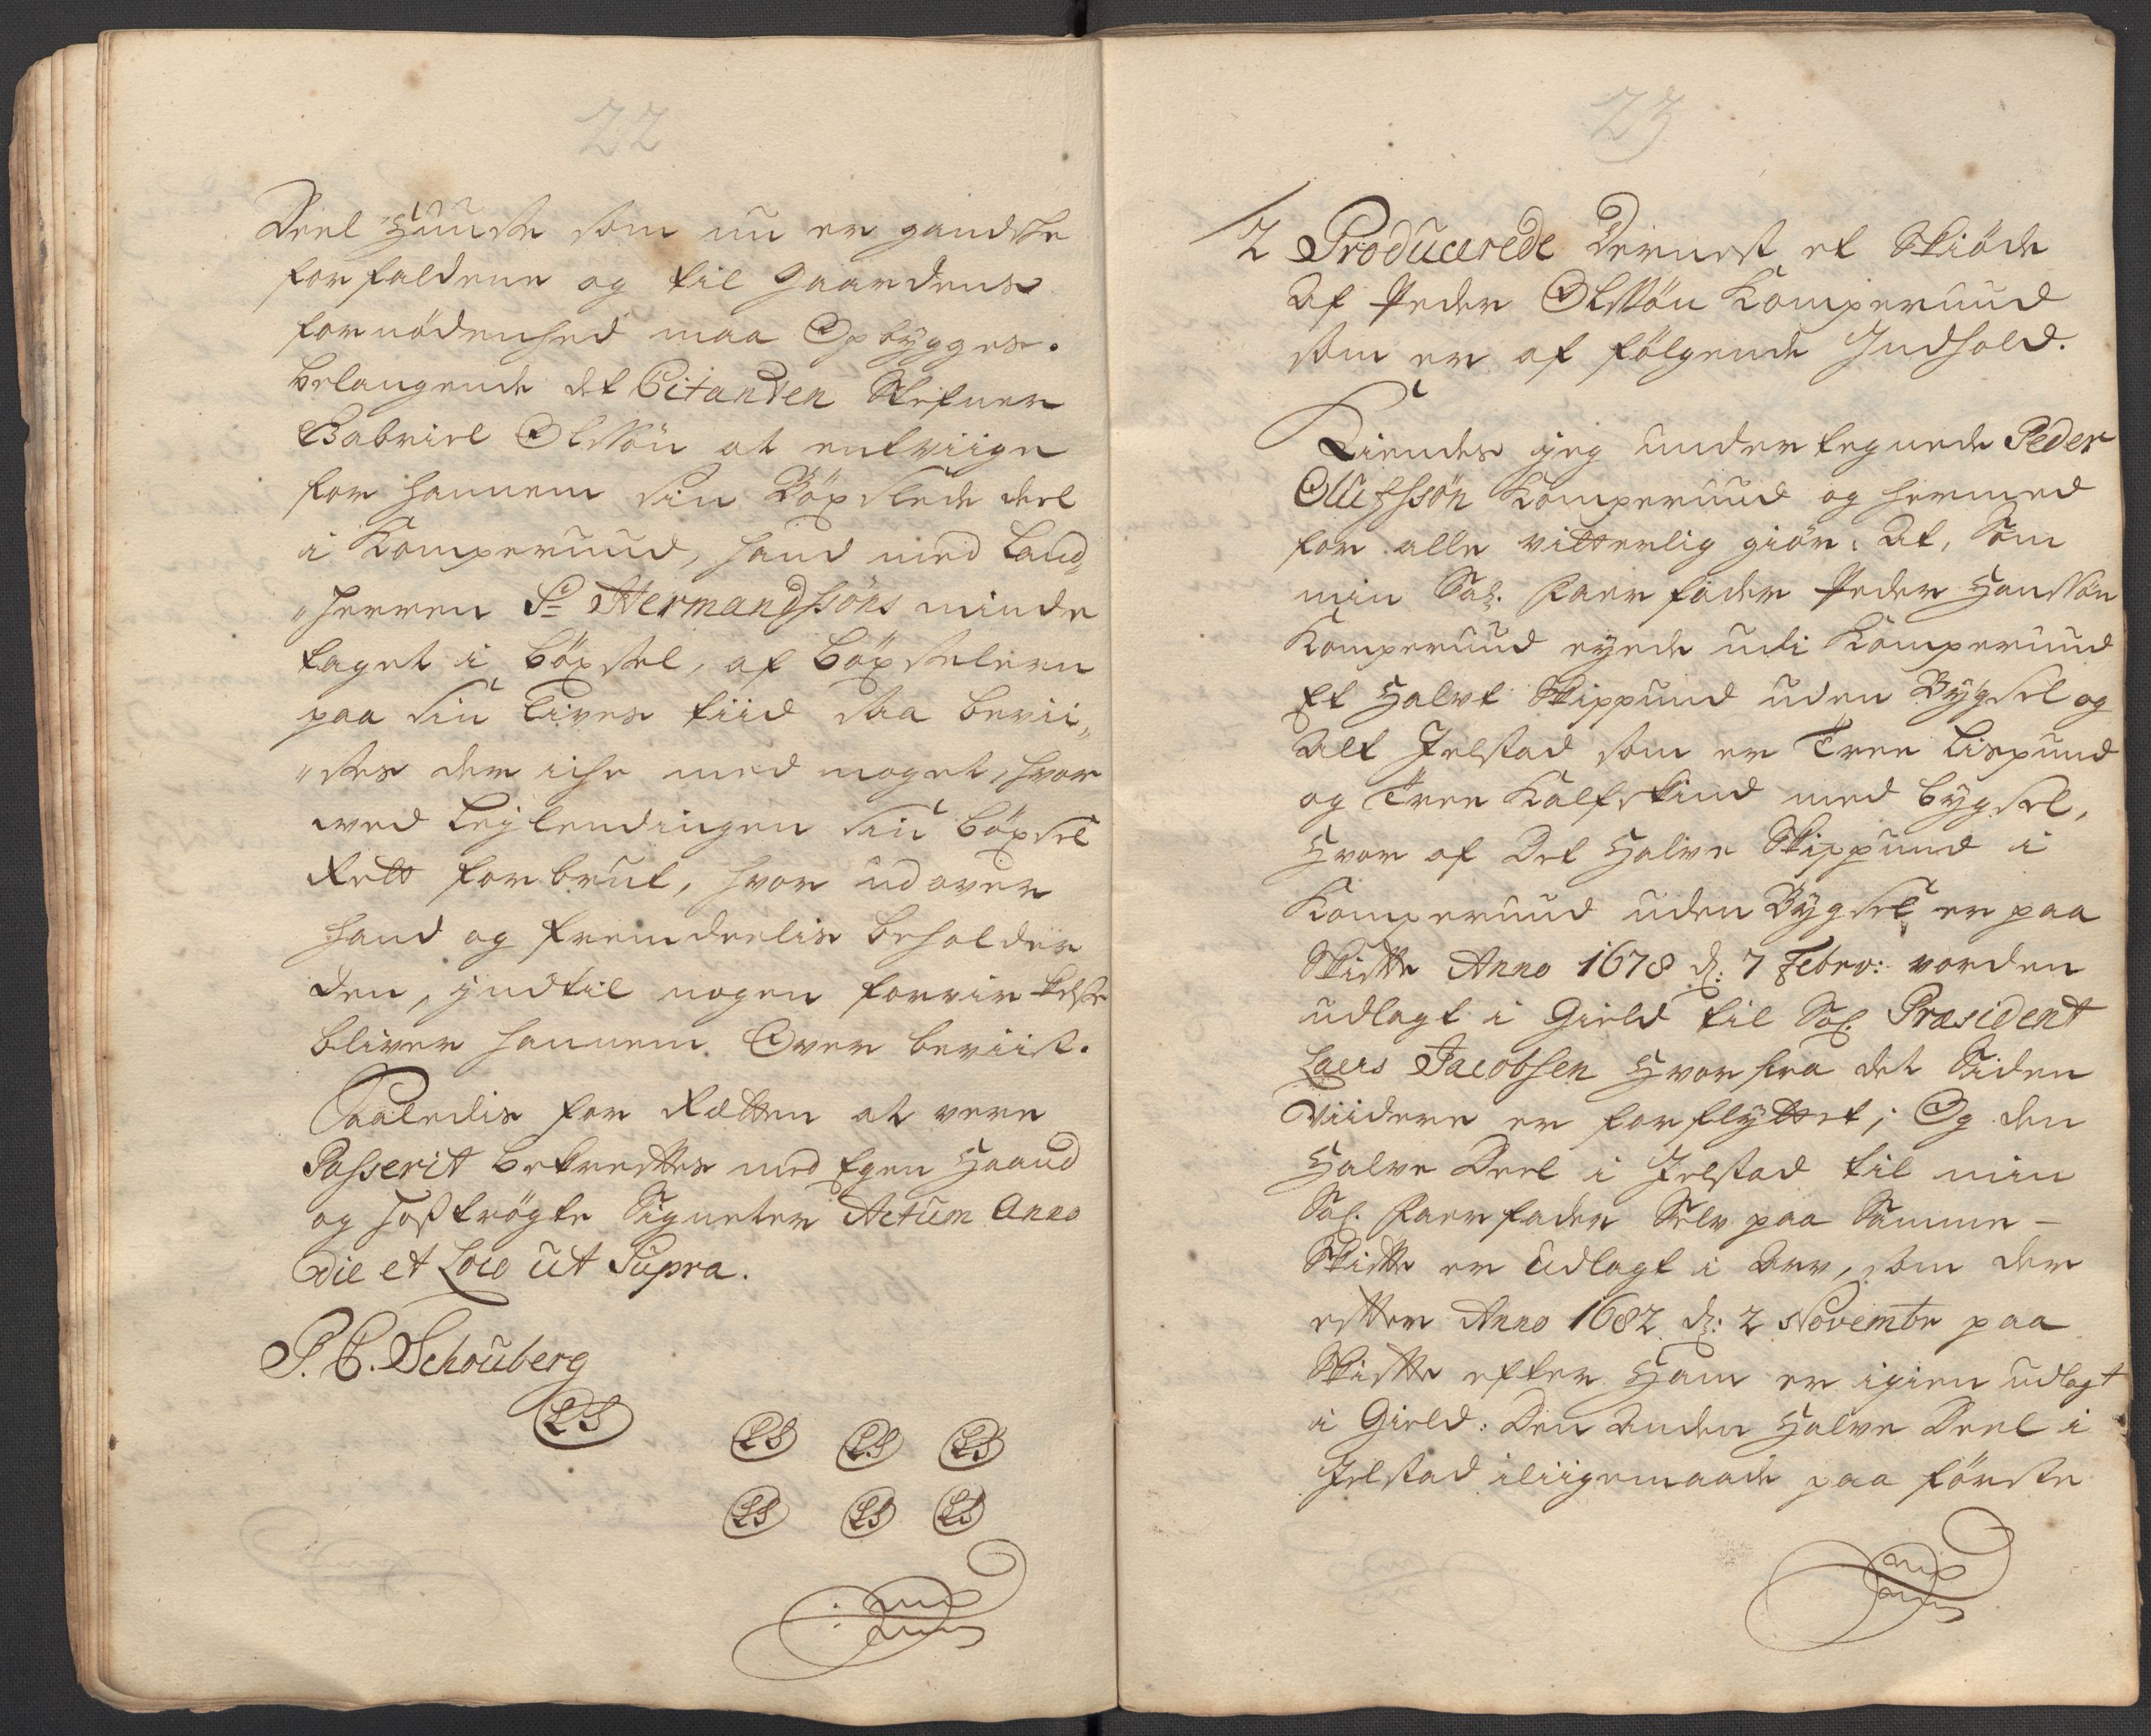 22
Deel Huuse som nu er gandske
forfaldene og til Gaardens
fornødenhed maa Opbygges.
belangende det Citanten Stefner
Gabriel Olssøn at entviige
for hannem sin Böxslede deel
i Komperuud, hand med Land„
„herren Sr Hermandssöns minde
taget i böxsel, af böxseleren
paa sin Lives tiid saa bevii„
„ses der iche med noget, hvor
ved Leylendingen sin böxsel
Rett forbrut, hvor udover
hand og fremdeelis beholder
den, indtil nogen forvirkelse
bliver hannem Over beviist.
Saaledis for Rætten at vere
Passerit bekreftes med Egen Haand
og hoß trögte Signeter Actum Anno
Die et Loco ut Supra.
P. C. Schouberg
LS
LS LS LS
LS LS LS
23
2 Producerede Dernest et Skiöde
Af Peder Olssön Komperuud
som er af fölgende Indhold.
Kiendes jeg undertegnede Peder
Olufssøn Komperuud og hermed
for alle vitterlig giör: At, Som
min Sal. Faerfader Peder Hanssön
Komperuud eyede udi Komperuud
Et Halvt Skippund uden Bygsel og
Alt Jelstad som er Tree Lispund
og Tree Kalfskind med bygsel,
Hvor af Det Halve Skippund i
Komperuud uden Bygsel er paa
Skifte Anno 1678 d: 7 Febro: vorden
udlagt i Gield til Sal. Præsident
Laurs Jacobsen Hvor fra det Siden
Viidere er forflyttet; Og den
Halve Deel i Jelstad til min
Sal. Faerfader Selv paa Samme -
Skifte er Udlagt i Arv, som der
efter Anno 1682 d: 2 Novembr paa
Skifte efter Ham er igien udlagt
i Gield: Den Anden Halve Deel i
Jelstad iliigemaade paa förste